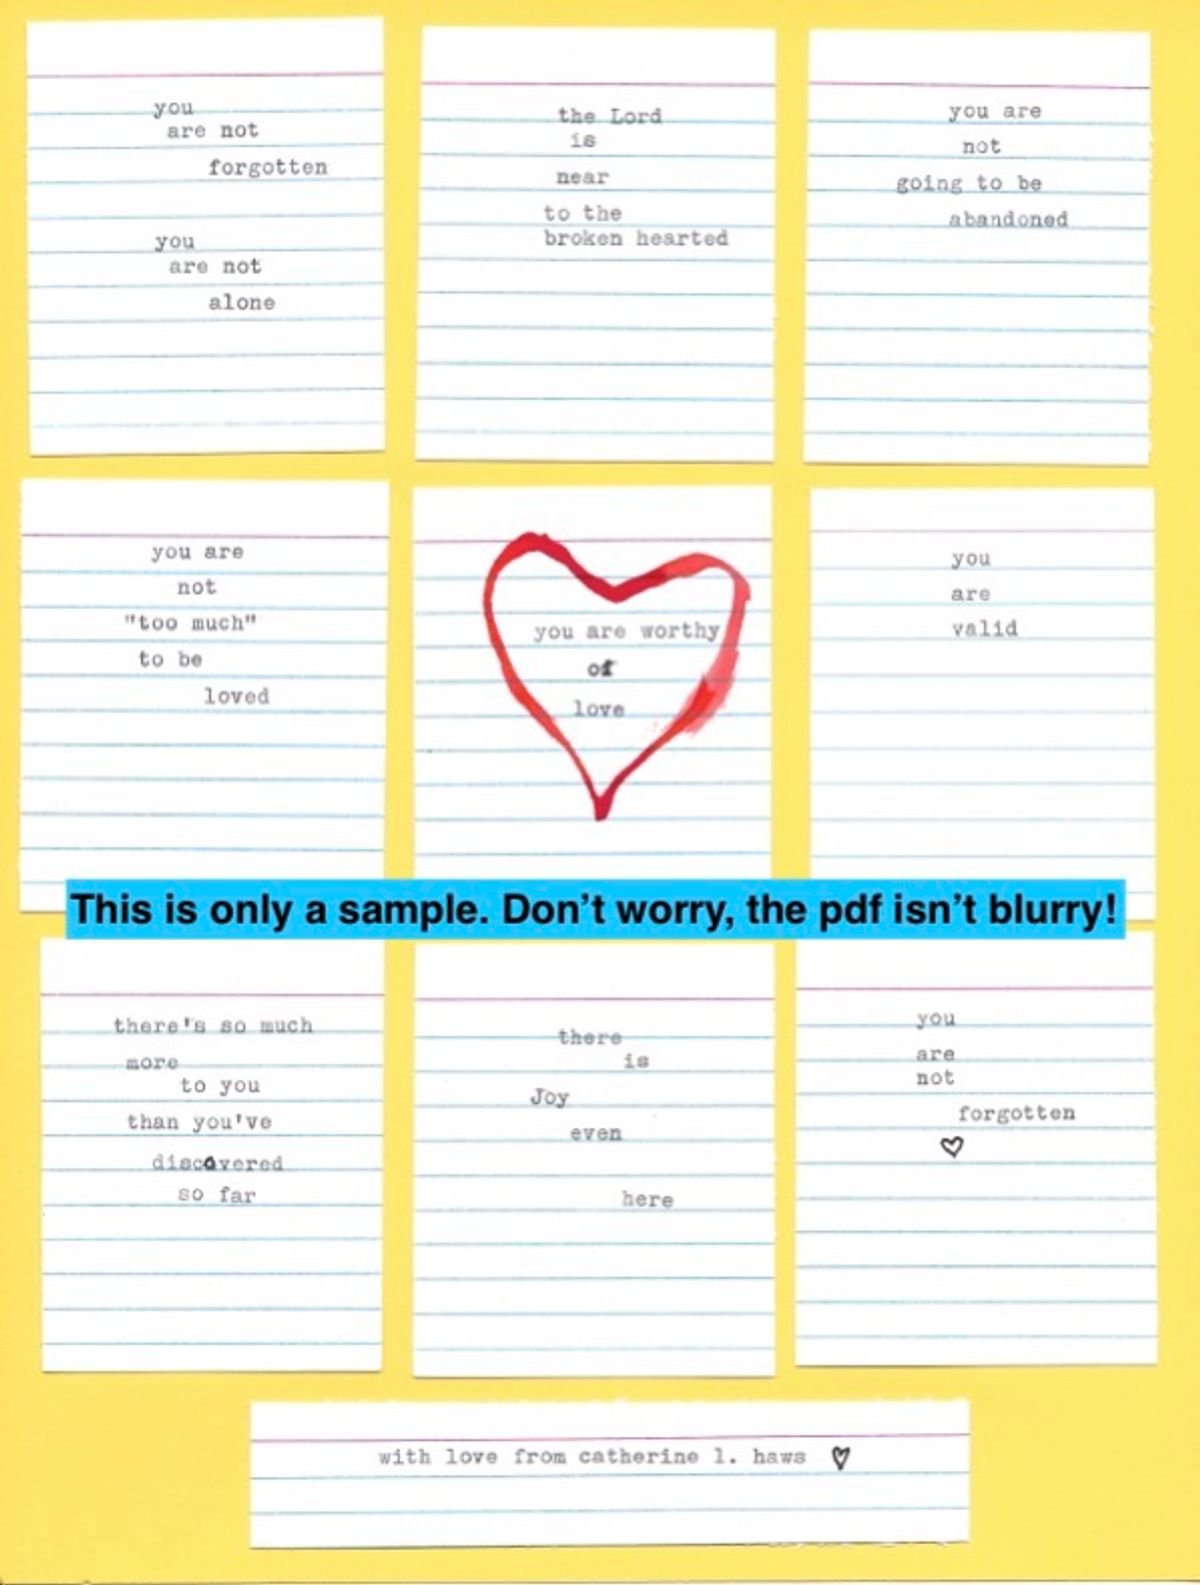 you
are not
forgotten
you
are not
alone
the Lord
is
near
to the
broken hearted
you are
not
going to be
abandoned
you are
not
"too much"
to be
loved
you are worthy
of
love
you
are
valid
This is only a sample. Don't worry, the pdf isn't blurry!
there's so much
more
to you
than you've
discovered
so far
there
is
Joy
even
here
you
are
not
forgotten
with love from catherine l. haws